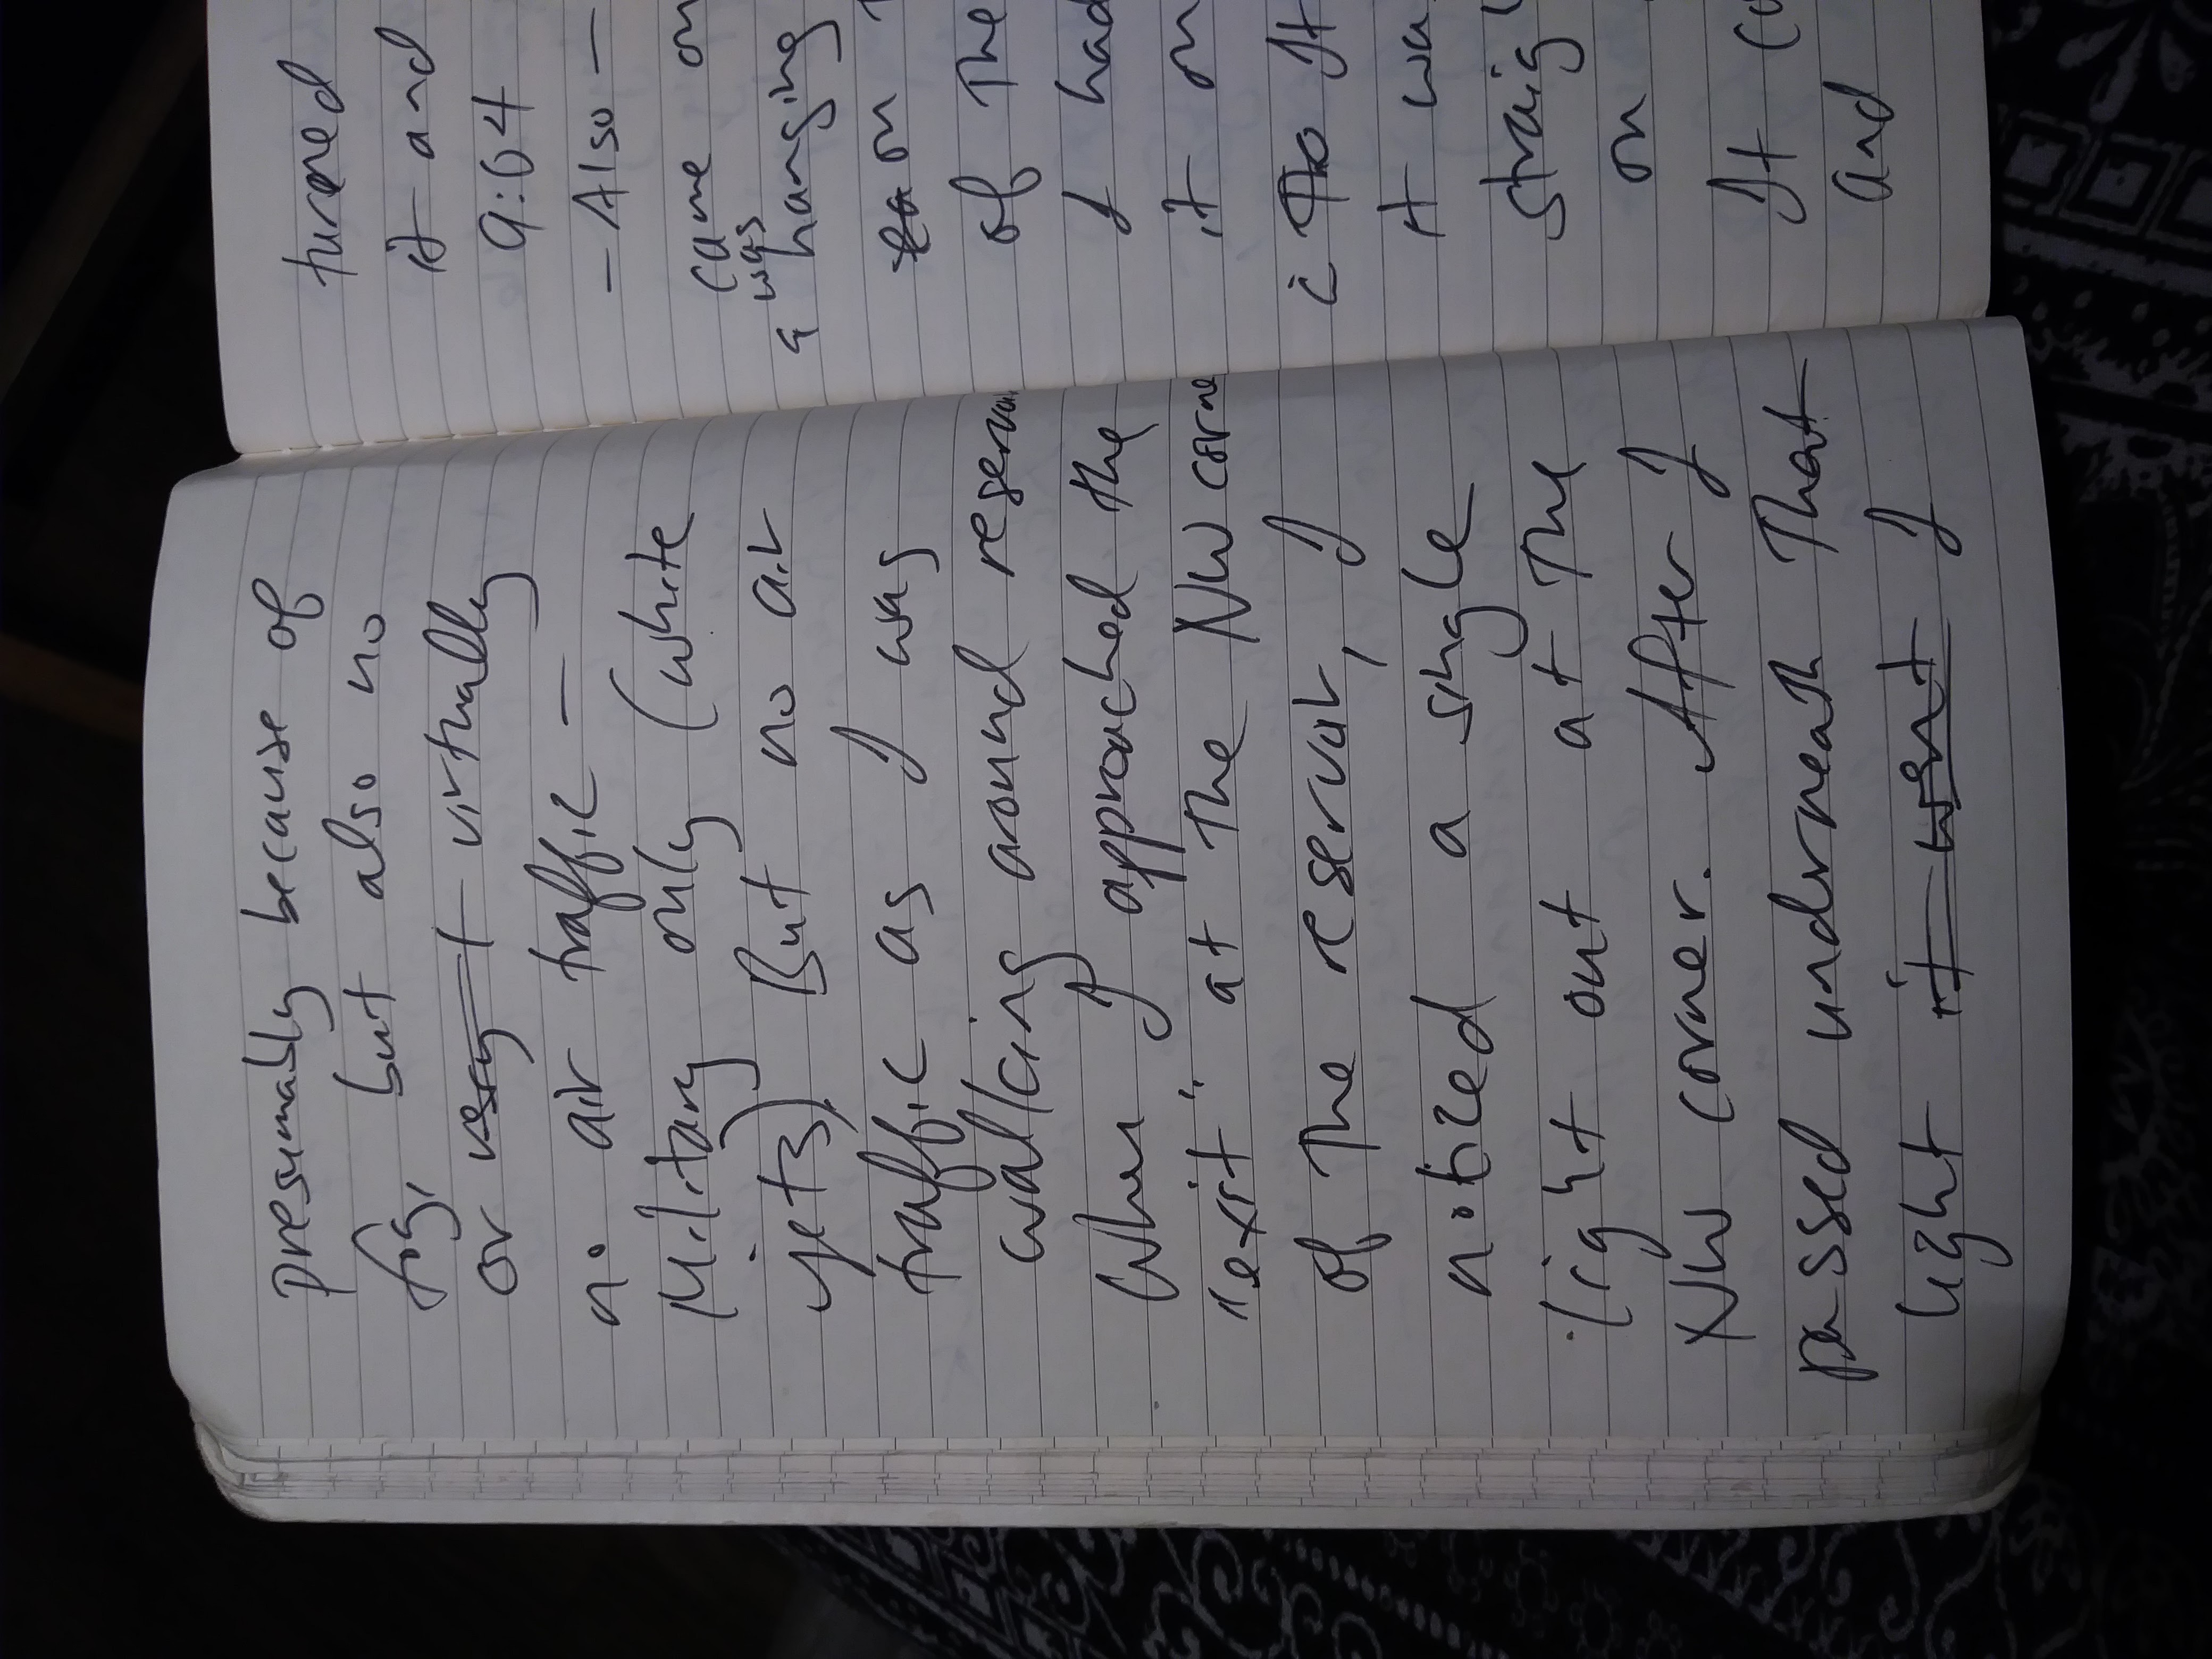 presumably because of
fog, but also no
or very virtually
no air traffic -
Military only (white
jets) But no air
traffic as I was
walking around reservoi
When I approached the
"exit" at the NW corne
of the reservoir, I
noticed a single
light out at the
NW corner. After I
passed underneath that
light it went I
turned
it and
9:04
- Also -
came on
was
a hanging
on
of the
I had
it on
It
it wa
straig
on
It co
and